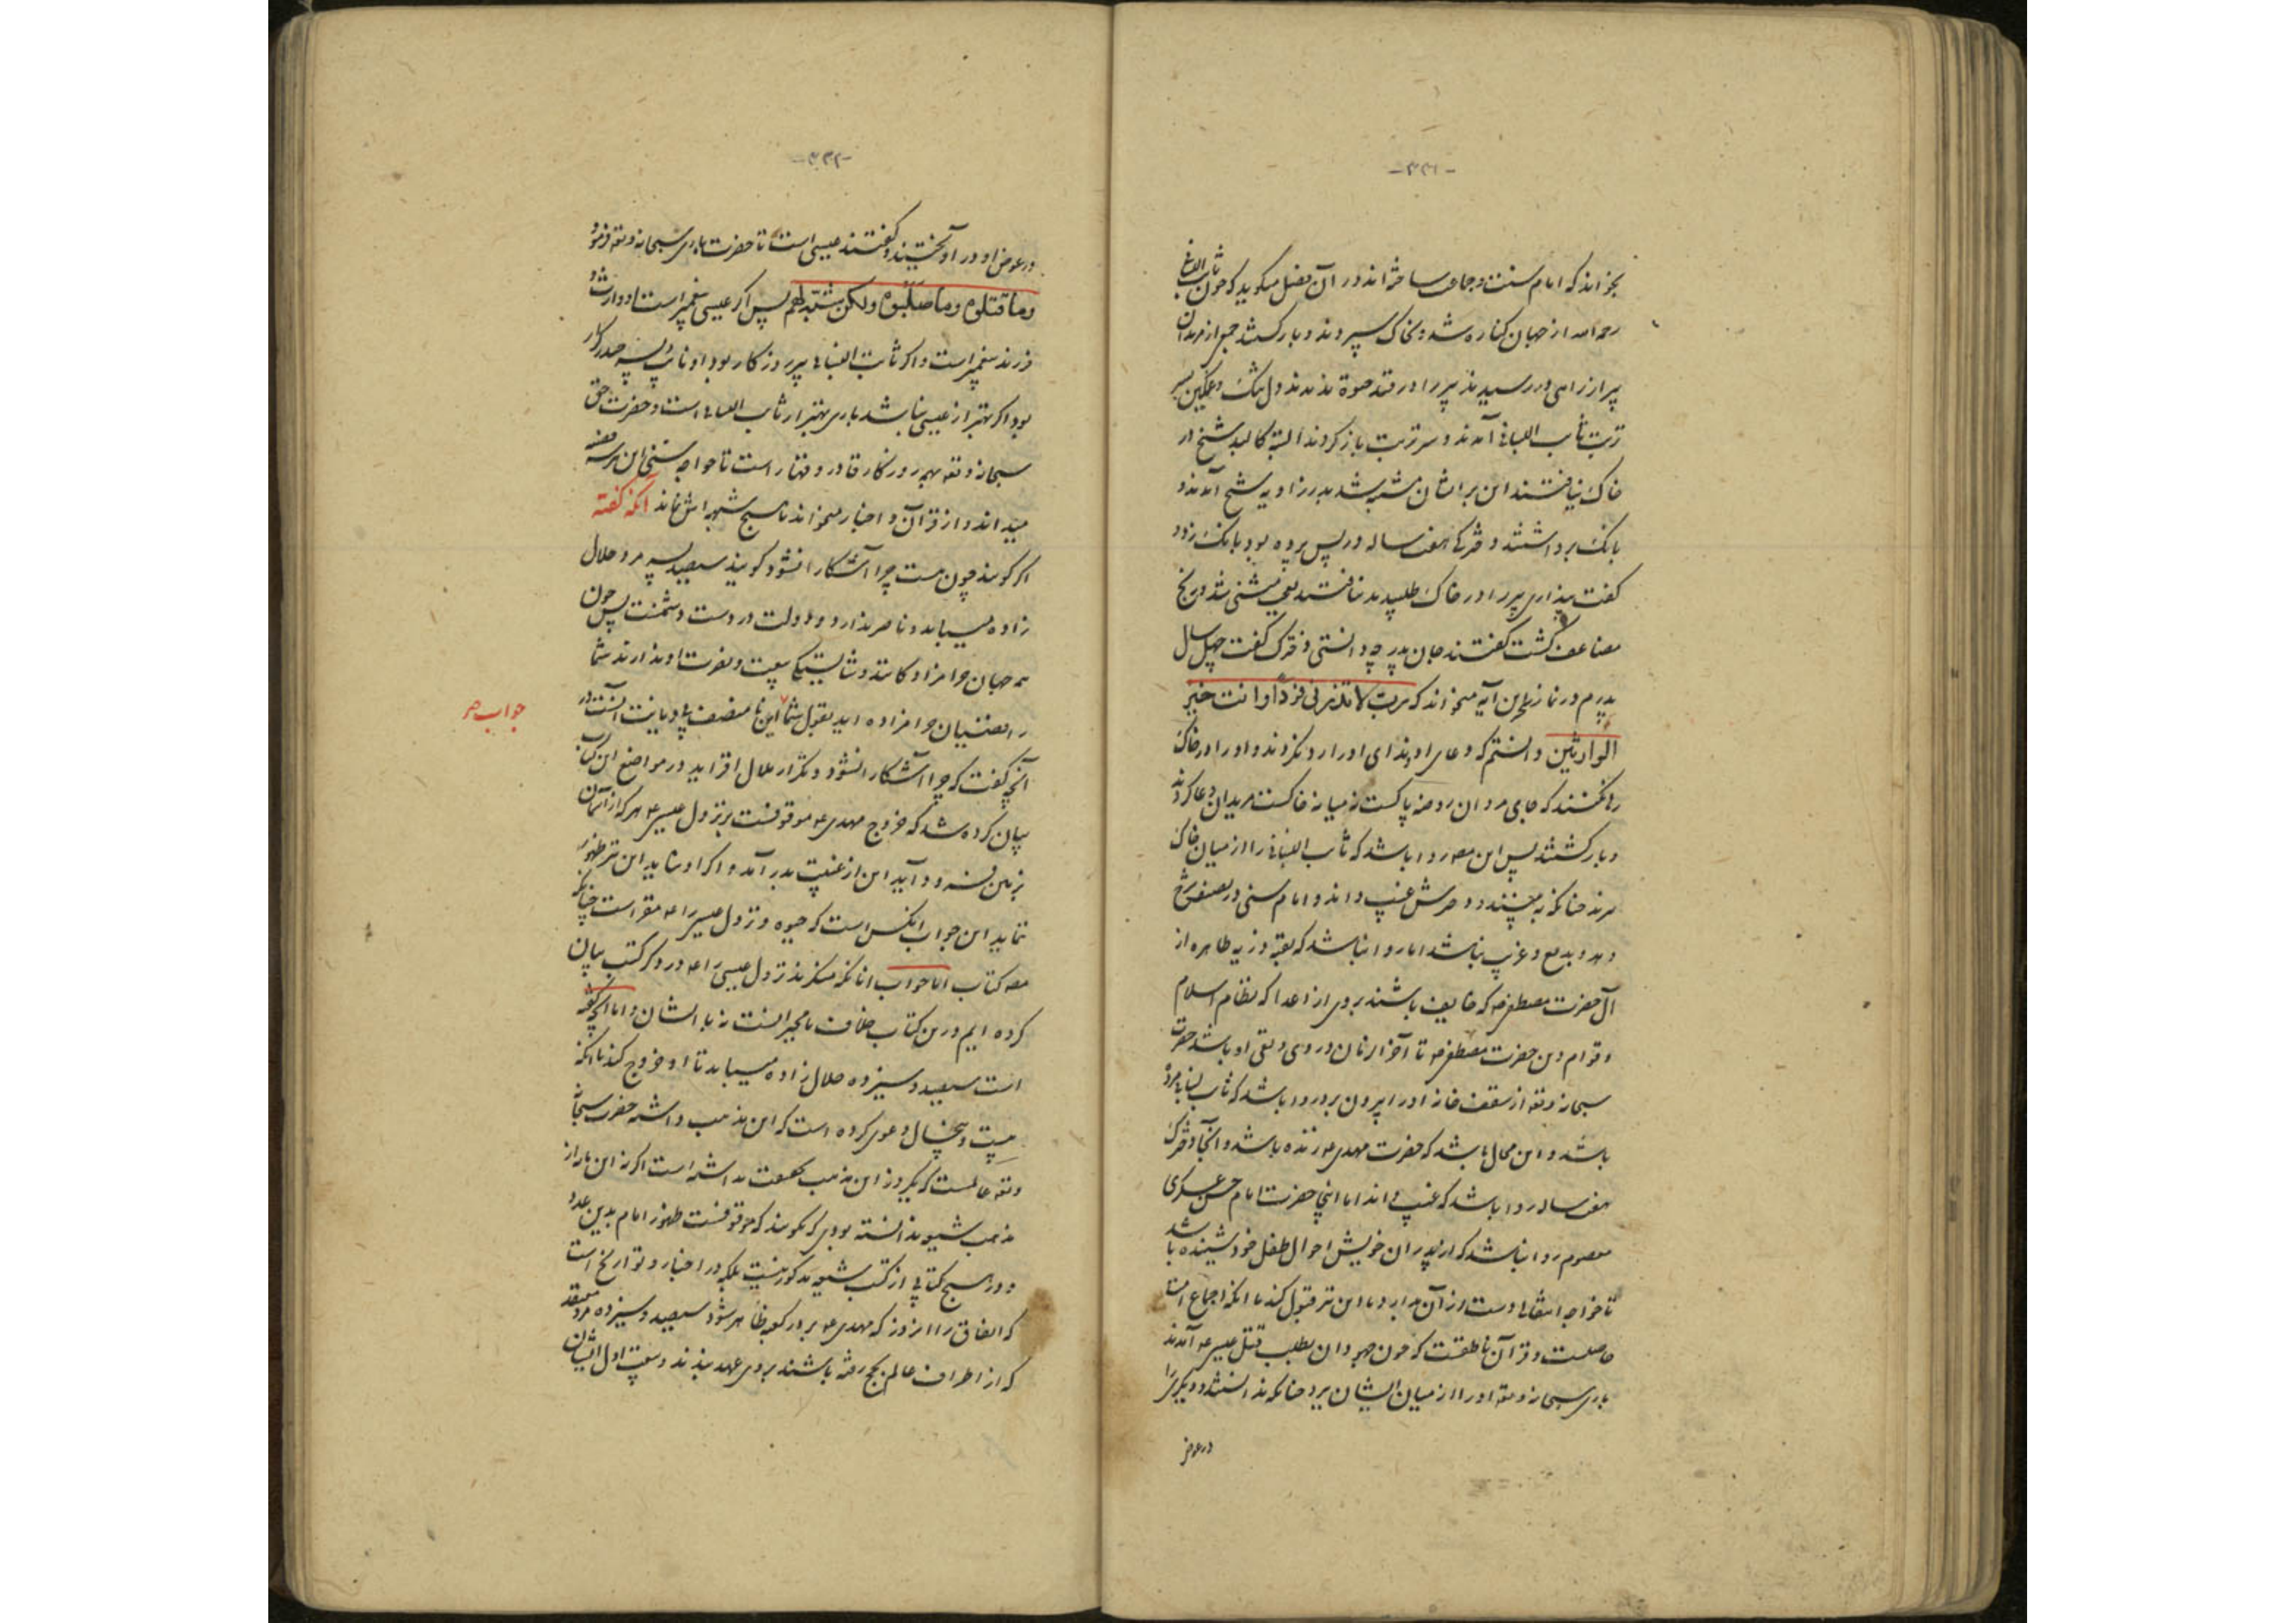 -۳۳۱-
بخواند که امام سنت و جماعت ساخته اند در آن فصل میگوید که چون ثابت البنانی
رحمه الله از جهان کناره شد و بخاک سپردند و باز گشتند جمعی از مریدان
پیر از راهی در رسیدند پیر را در قید حیوة ندیدند دل تنگ و غمگین بسر
تربت ثابت البنانی آمدند و سر تربت باز کردند البته کالبد شیخ در
خاک نیافتند این بر ایشان مشتبه شد بدر زاویه شیخ آمدند و
بانک برداشتند دخترکی هفت ساله در پس پرده بود بانک زد و
گفت پنداری پیر را در خاک طلبیدید نیافتید
مضاعف گشت گفتند جان پدر چه دانستی دخترک گفت چهل سال
پدرم در نماز این آیه میخواند که رب لا تذرنی فردا وانت خیر
الوارثین دانستم که دعای او و ندای او را رد نکردند و او را در خاک
رها نکنند که جای مردان روضه پاکست نه میانه خاکست مریدان دعا کردند
و باز گشتند پس این مصه روا باشد که ثابت البنانی را از میان خاک
برند چنانکه نه بینند و دخترش غیب داند و امام سنی در تصنیف شرح
دهد و بدیع و غریب نباشد اما روا نباشد که بقیه ذریه طاهره از
آل حضرت مصطفی صه که خایف باشند بروی از اعدا که نظام اسلام
و قوام دین حضرت مصطفی صه تا آخر الزمان در وی و تقی او باشد حضرت
سبحانه و تعه از سقف خانه او را بیرون برد روا باشد که ثابت بنانی مرده
باشد و این محال باشد که حضرت مهدی عه زنده باشد و آنجا دخترک
هفت ساله روا باشد که غیب داند اما اینجا حضرت امام حسن عسکری
معصوم روا نباشد که از پدران خویش احوال طفل خود شنیده باشد
تا خواجه انتقالی دست از آن بدارد یا این نیز قبول کند با آنکه اجماع امت
حاصلست و قرآن ناطقست که چون جهودان بطلب قتل عیسی عه آمدند
باری سبحانه و تعه او را از میان ایشان برد چنانکه ندانستند و دیگری را
در عوض
-۳۳۲-
در عوض او در آویختند و گفتند عیسی است تا حضرت باری سبحانه و تعه فرمود
وما قتلوه وما صلبوه ولکن شبه لهم پس اگر عیسی پیغمبر است او وارث و
فرزند پیغمبر است و اگر ثابت البنانی پیر روزگار بود او نائب و پسر صدر کبار
بود اگر بهتر از عیسی نباشد باری بهتر از ثابت البنانی است و حضرت حق
سبحانه و تعه بهمه روزگار قادر و مختار است تا خواجه سنی این هر سه قصه
میداند و از قرآن و اخبار میخواند تا هیچ شبهه اش نماند آنکه گفته
اگر گویند چون هست چرا آشکارا نشود گویند سیصد و سیزده مرد حلال
زاده میباید و ناصر ندارد و دولت در دست دشمنست پس چون
همه جهان حرامزادگانند و شایستگی بیعت و نصرت او ندارند شما
رافضیان حرامزاده اید بقول شما این نا منصف بی دیانت آنست در
آنچه گفت که چرا آشکارا نشود و بتکرار ملال افزاید در مواضع این کتاب
بیان کرده شد که خروج مهدی عه موقوفست بر نزول عیسی عه هر گه از آسمان
بزمین فرود آید این از غیبت بدر آمد و اگر او نیاید این نیز ظهور
ننماید این جواب آنکس است که حیوة و نزول عیسی را عه مقر است چنانکه
مصه کتاب اما جواب آنانکه منکرند نزول عیسی را عه در دیگر کتب بیان
کرده ایم در این کتاب خلاف با مجبرانست نه با ایشان و اما آنچه گفته
است سیصد و سیزده حلال زاده میباید تا او خروج کند با آنکه
بیست و پنجسال دعوی کرده است که این مذهب داشته حضرت سبحانه
و تعه عالمست که یکروز این مذهب بحقیقت نداشته است اگر نه این باز از
مذهب شیعه ندانسته بودی که نگویند که موقوفست ظهور امام بدین عدد
و در هیچ کتابی از کتب شیعه مذکور نیست بلکه در اخبار و تواریخ است
که اتفاق را آنروز که مهدی عه بر در کعبه ظاهر شود سیصد و سیزده مرد معتقد
که از اطراف عالم بحج رفته باشند بروی عهد بندند و بیعت اول ایشان
جواب صر